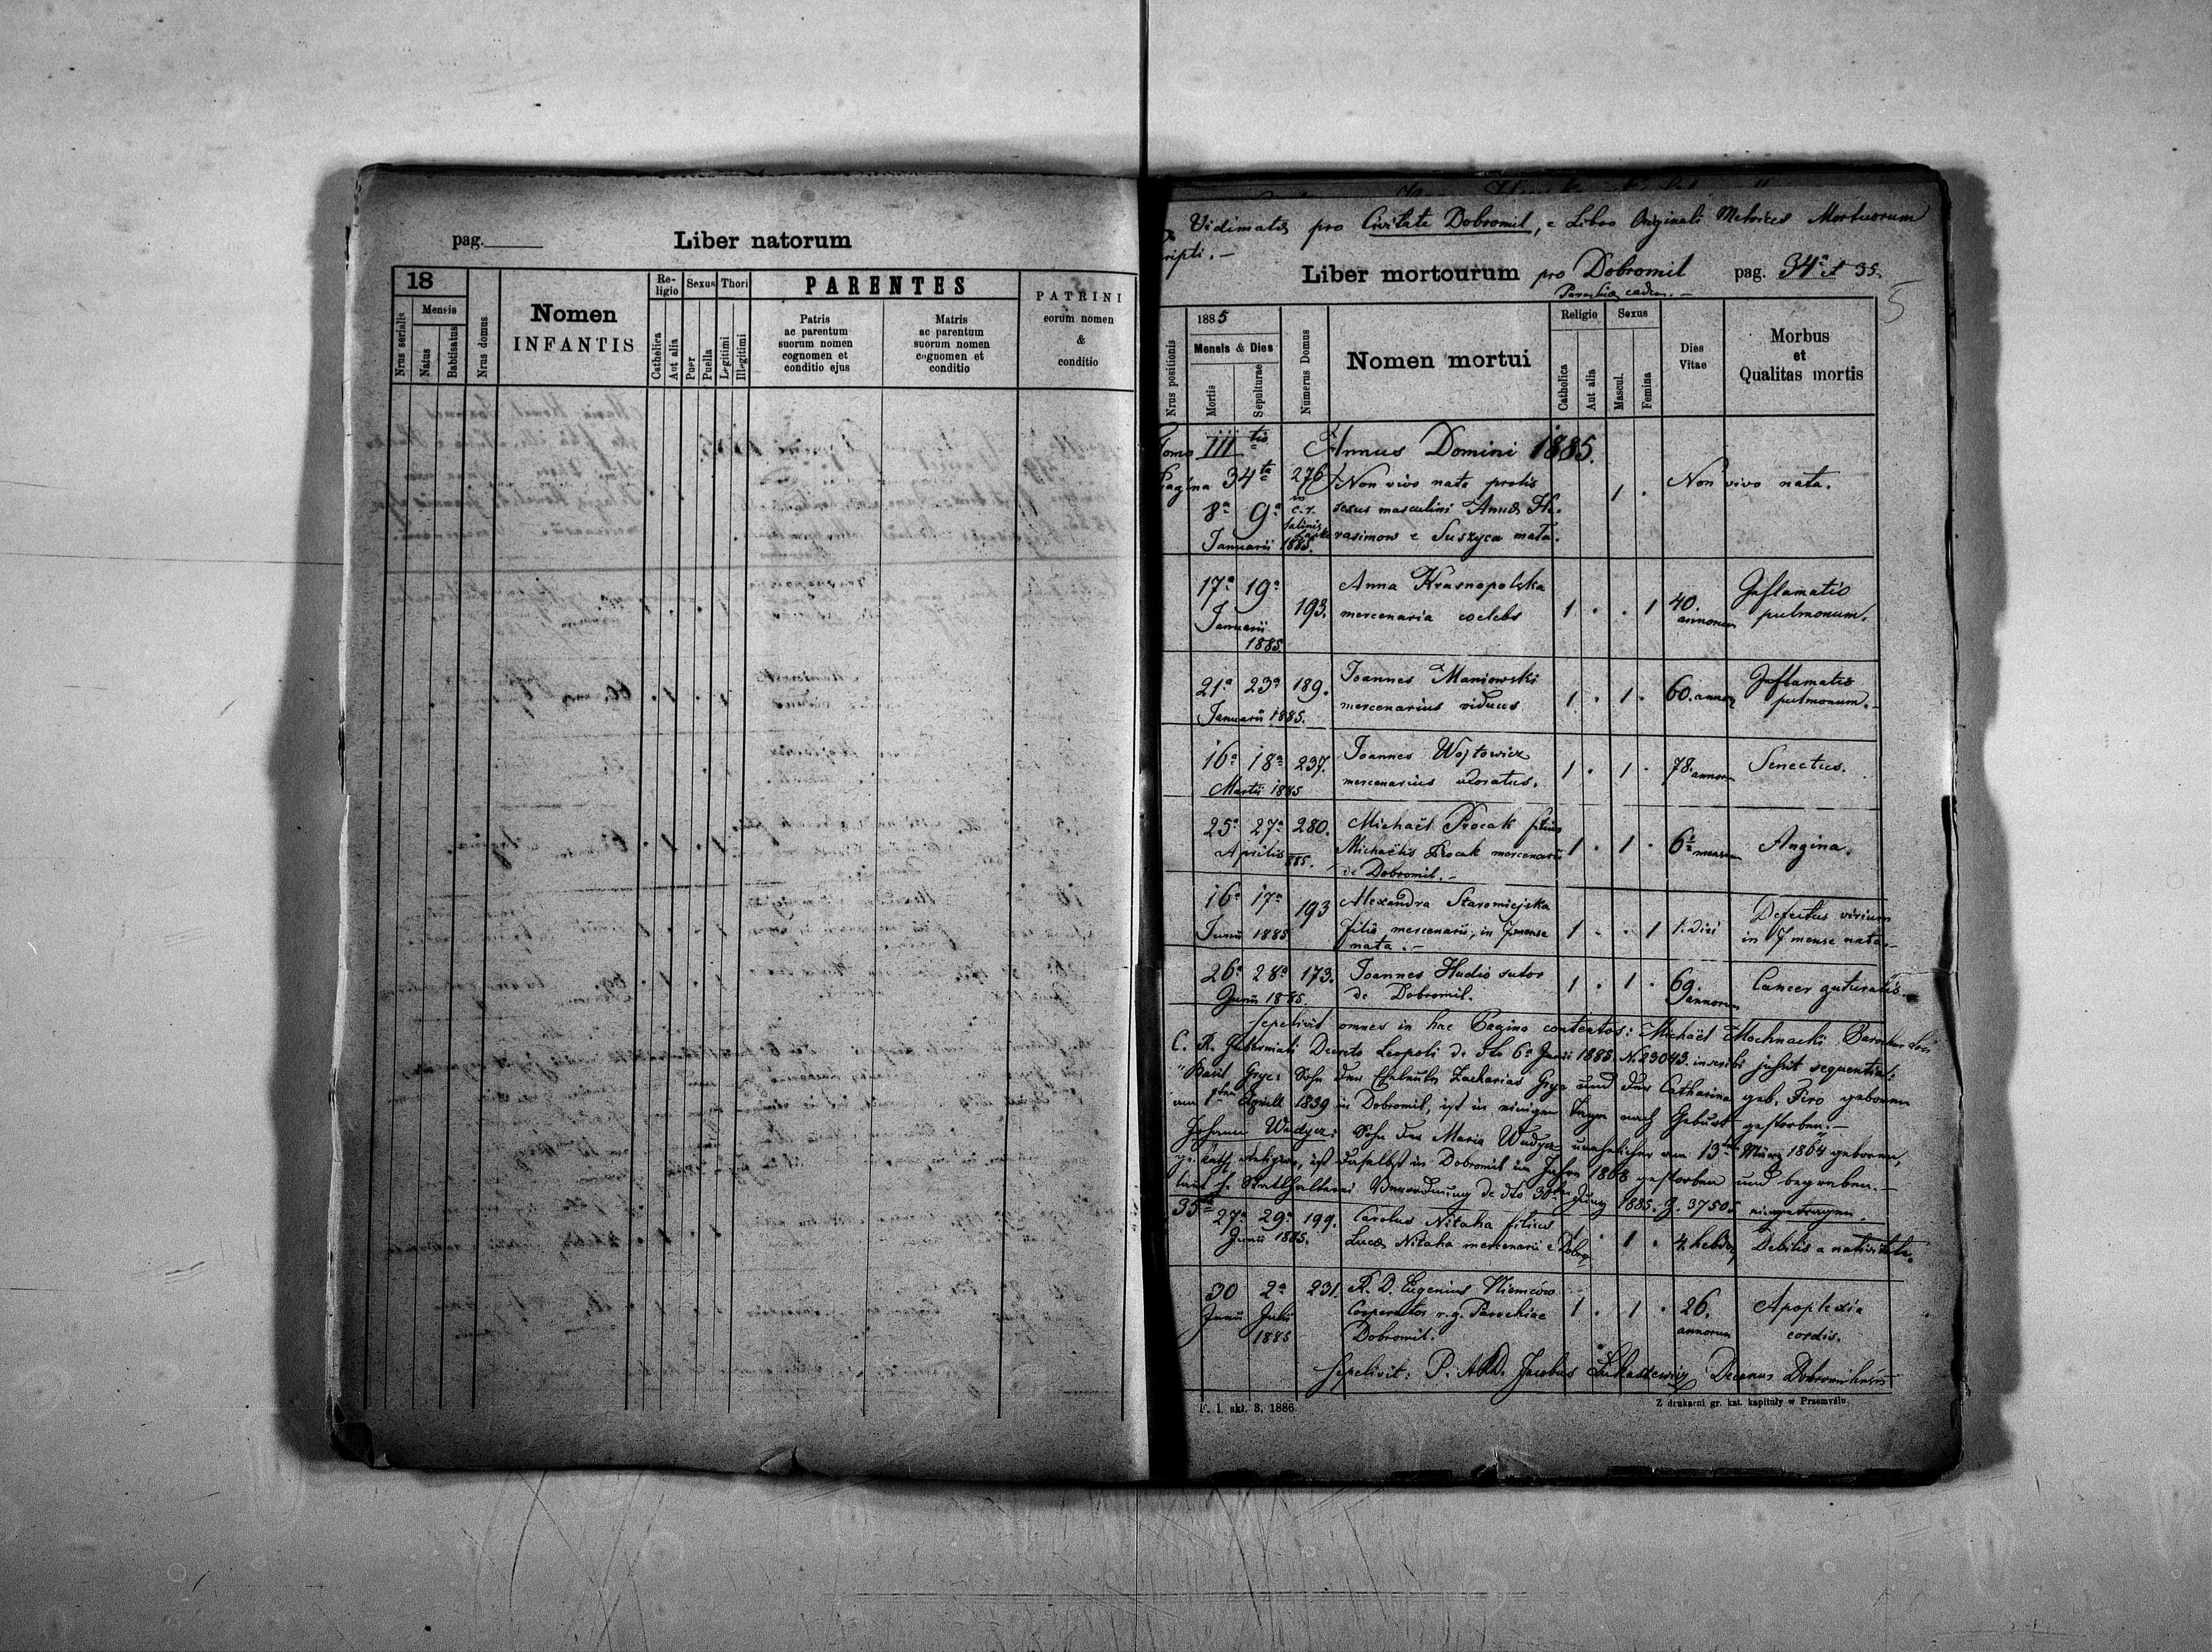 pag.
Liber natorum
18
Mensis
Nrus serialis
Natus
Babtisatus
Nrus domus
Nomen
INFANTIS
Re-
ligio
Catholica
Aut alia
Sexus
Puer
Puella
Thori
Legitimi
Illegitimi
PARENTES
Patris
ac parentum
suorum nomen
cognomen et
conditio ejus
Matris
ac parentum
suorum nomen
cognomen et
conditio
PATRINI
eorum nomen
&
conditio
Vidimatæ pro Civitate Dobromil, e Libro Originali Metrices Mortuorum
ripti.-
Liber mortourum pro Dobromil pag. 34ª et 35.
5
Nrus positionis
1885
Mensis & Dies
Mortis
Sepulturae
Numerus Domus
Nomen mortui
Religio
Catholica
Aut alia
Sexus
Mascul.
Femina
Dies
Vitae
Morbus
et
Qualitas mortis
Tomo III tio Annus Domini 1885.
Pagina 34ta 276 Non vivo nata prolis 1 . Non vivo nata.
8ª 9ª in c.r. Salinis sexus masculini Annæ He-
Januarii 1885. rasimow e Suszyca mata.
17ª 19ª 193. Anna Krasnopolska 1 . . 1 40. Inflamatio
Januarii mercenaria coelebs annorum pulmonum.
1885
21ª 23ª 189. Joannes Maniowski 1 . 1 . 60. annor Inflamatio
Januarii 1885. mercenarius viduus pulmonum.-
16ª 18ª 237. Joannes Wojtowicz 1 . 1 . 78. annor Senectus.
Martii 1885 mercenarius uxoratus.
25ª 27ª 280. Michaël Procak filius 1 . 1 . 6 mensium Angina.
Aprilis 885. Michaëlis Procak mercenarii
de Dobromil.-
16ª 17ª 193 Alexandra Staromiejska 1 . . 1 1. diei Defectus virium
Junii 1885 filia mercenarii, in 7 mense in 7 mense nata.-
nata.-
26ª 28ª 173. Joannes Hudio sutor 1 . 1 . 69. Cancer guturalis.
Junii 1885. de Dobromil. annorum
Sepelivit omnes in hac Pagina contentos: Michaël Mochnacki Parochus loci
C. R. Guberniali Decreto Leopoli de dto 6ª Junii 1885. N. 23043. inscribi jussit sequentia:
"Basil Gryc: Sohn der Eheleute Zacharias Gryc und der Catharina geb. Firo geboren
am 1ten April 1839 in Dobromil, ist in einigen Tagen nach Geburt gestorben.-
Johann Wudycz: Sohn der Maria Wudycz, unehelicher am 13ten März 1864 geboren,
Religion, ist daselbst in Dobromil im Jahre 1868 gestorben und begraben.-
laut h. Statthalterei Verordnung de dto 30ten Juny 1885. Z. 3750 eingetragen.
35ta 27ª 29ª 199. Carolus Nitaha filius 1 . 1 . 4. hebdo Debilis a nativitate.
Junii 1885. Lucæ Nitaha mercenarii e Dobro
30 2ª 231. R. D. Eugenius Niemców 1 . 1 . 26. Apoplexia
Junii Julii Cooperator r. g. Parochiae annorum cordis.
1885 Dobromil.
Sepelivit: P. Jacobus Łukaszewicz Decanus Dobromilensis
F. 1. skł. 3. 1886.
Z drukarni gr. kat. kapituły w Przemyślu.